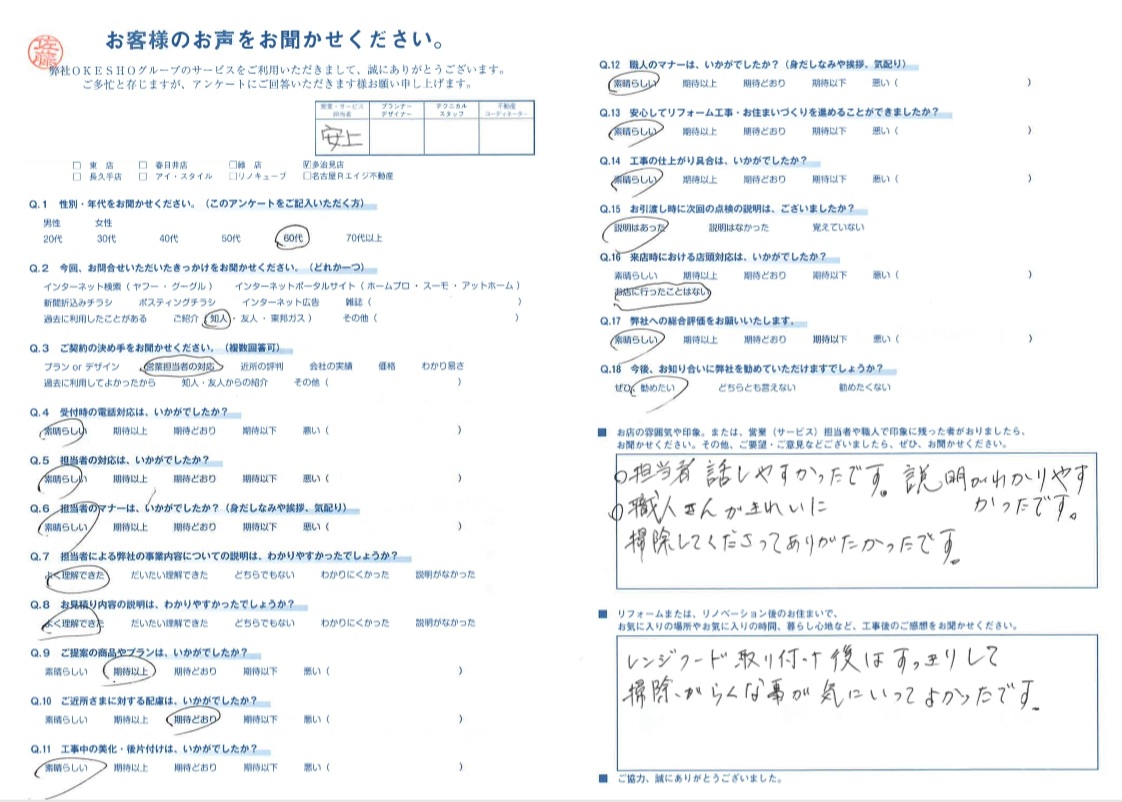 お客様のお声をお聞かせください。
佐藤
弊社OKESHOグループのサービスをご利用いただきまして、誠にありがとうございます。
ご多忙と存じますが、アンケートにご回答いただきます様お願い申し上げます。
営業・サービス担当者 プランナーデザイナー テクニカルスタッフ 不動産コーディネーター
安上
□ 東 店 □ 春日井店 □緑 店 ☑多治見店
□ 長久手店 □ アイ・スタイル □リノキューブ □名古屋Rエイジ不動産
Q.1 性別・年代をお聞かせください。(このアンケートをご記入いただく方)
男性 女性
20代 30代 40代 50代 60代 70代以上
Q.2 今回、お問合せいただいたきっかけをお聞かせください。(どれか一つ)
インターネット検索(ヤフー・グーグル) インターネットポータルサイト(ホームプロ・スーモ・アットホーム)
新聞折込みチラシ ポスティングチラシ インターネット広告 雑誌( )
過去に利用したことがある ご紹介(知人・友人・東邦ガス) その他( )
Q.3 ご契約の決め手をお聞かせください。(複数回答可)
プラン or デザイン 営業担当者の対応 近所の評判 会社の実績 価格 わかり易さ
過去に利用してよかったから 知人・友人からの紹介 その他( )
Q.4 受付時の電話対応は、いかがでしたか?
素晴らしい 期待以上 期待どおり 期待以下 悪い( )
Q.5 担当者の対応は、いかがでしたか?
素晴らしい 期待以上 期待どおり 期待以下 悪い( )
Q.6 担当者のマナーは、いかがでしたか?(身だしなみや挨拶、気配り)
素晴らしい 期待以上 期待どおり 期待以下 悪い( )
Q.7 担当者による弊社の事業内容についての説明は、わかりやすかったでしょうか?
よく理解できた だいたい理解できた どちらでもない わかりにくかった 説明がなかった
Q.8 お見積り内容の説明は、わかりやすかったでしょうか?
よく理解できた だいたい理解できた どちらでもない わかりにくかった 説明がなかった
Q.9 ご提案の商品やプランは、いかがでしたか?
素晴らしい 期待以上 期待どおり 期待以下 悪い( )
Q.10 ご近所さまに対する配慮は、いかがでしたか?
素晴らしい 期待以上 期待どおり 期待以下 悪い( )
Q.11 工事中の美化・後片付けは、いかがでしたか?
素晴らしい 期待以上 期待どおり 期待以下 悪い( )
Q.12 職人のマナーは、いかがでしたか?(身だしなみや挨拶、気配り)
素晴らしい 期待以上 期待どおり 期待以下 悪い( )
Q.13 安心してリフォーム工事・お住まいづくりを進めることができましたか?
素晴らしい 期待以上 期待どおり 期待以下 悪い( )
Q.14 工事の仕上がり具合は、いかがでしたか?
素晴らしい 期待以上 期待どおり 期待以下 悪い( )
Q.15 お引渡し時に次回の点検の説明は、ございましたか?
説明はあった 説明はなかった 覚えていない
Q.16 来店時における店頭対応は、いかがでしたか?
素晴らしい 期待以上 期待どおり 期待以下 悪い( )
お店に行ったことはない
Q.17 弊社への総合評価をお願いいたします。
素晴らしい 期待以上 期待どおり 期待以下 悪い( )
Q.18 今後、お知り合いに弊社を勧めていただけますでしょうか?
ぜひ、勧めたい どちらとも言えない 勧めたくない
■ お店の雰囲気や印象。または、営業(サービス)担当者や職人で印象に残った者がおりましたら、
お聞かせください。その他、ご要望・ご意見などございましたら、ぜひ、お聞かせください。
○担当者 話しやすかったです。説明がわかりやす
かったです。
○職人さんがきれいに
掃除してくださってありがたかったです。
■ リフォームまたは、リノベーション後のお住まいで、
お気に入りの場所やお気に入りの時間、暮らし心地など、工事後のご感想をお聞かせください。
レンジフード取り付け後はすっきりして
掃除がらくな事が気にいってよかったです。
■ ご協力、誠にありがとうございました。